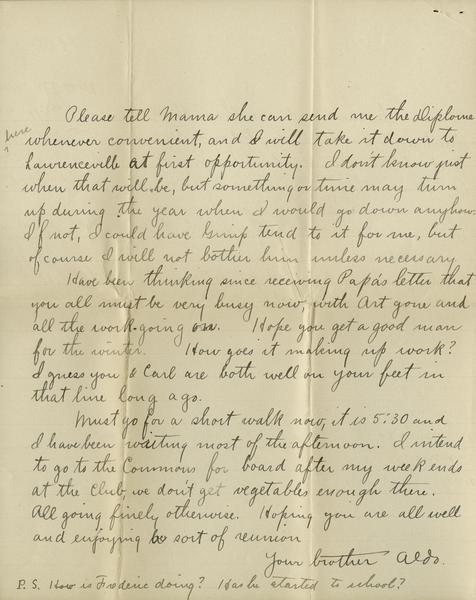 Please tell Mama she can send me the Diploma
here
whenever convenient, and I will take it down to
Lawrenceville at first opportunity. I don't know just
when that will be, but something or time may turn
up during the year when I would go down anyhow.
If not, I could have Gimp tend to it for me, but
of course I will not bother him unless necessary
Have been thinking since receiving Papa's letter that
you all must be very busy now, with Art gone and
all the work going on. Hope you get a good man
for the winter. How goes it making up work?
I guess you & Carl are both well on your feet in
that line long ago.
Must go for a short walk now, it is 5:30 and
I have been writing most of the afternoon. I intend
to go to the Commons for board after my week ends
at the Club, we don't get vegetables enough there.
All going finely otherwise. Hoping you are all well
and enjoying sort of reunion
Your brother Aldo.
P.S. How is Frederic doing? Has he started to school?